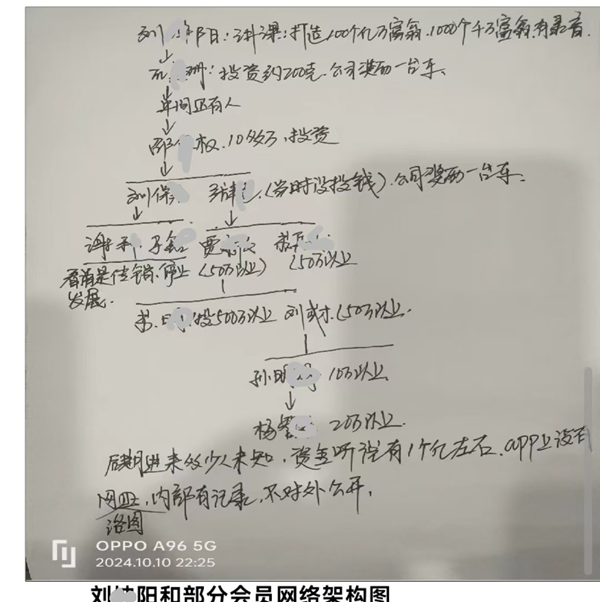 刘 阳：讲课：打造100个亿万富翁.1000个千万富翁.有录音.
石 珊：投资约200克.公司奖励一台车.
中间还有人
邵 权.10多万.投资
刘保 (当时没投钱).公司奖励一台车.
谢 贾
看着是传销.停止发展. (50万以上) (50万以上
投500万以上 刘 (50万以上.
孙明 10万以上
杨 20万以上.
后期进来多少人未知，资金听说有1个亿左右.app上没有
网
络图，内部有记录，不对外公开，
OPPO A96 5G
2024.10.10 22:25
刘 阳和部分会员网络架构图